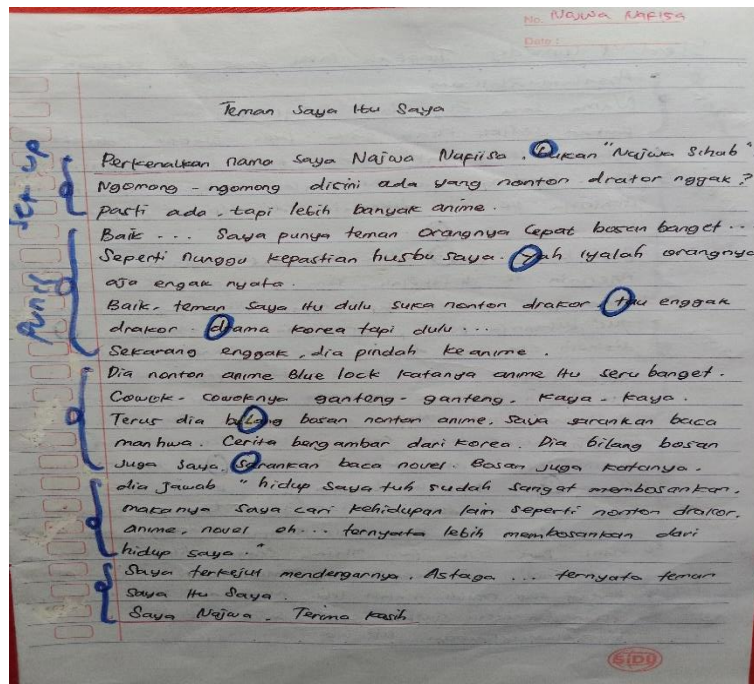 No. Najwa Nafisa
Date :
Teman Saya Itu Saya
Set up
Perkenalkan nama saya Najwa Nafiisa. Bukan "Najwa Sihab"
Ngomong - ngomong disini ada yang nonton drator nggak?
pasti ada. tapi lebih banyak anime.
Baik ... Saya punya teman orangnya cepat bosan banget..
Seperti nunggu kepastian husbu saya. Yah iyalah orangnya
aja engak nyata.
Punch
Baik. teman saya itu dulu suka nonton drakor. tau enggak
drakor. drama korea tapi dulu ...
Sekarang enggak, dia pindah ke anime.
Dia nonton anime Blue lock katanya anime itu seru banget.
Cowok - cowoknya ganteng - ganteng, kaya - kaya.
Terus dia bilang bosan nonton anime. saya sarankan baca
manhwa. Cerita bergambar dari korea. Dia bilang bosan
juga saya sarankan baca novel. Bosan juga katanya.
dia jawab "hidup saya tuh sudah sangat membosankan.
makanya saya cari kehidupan lain seperti nonton drakor.
anime, novel oh... ternyata lebih membosankan dari
hidup saya."
Saya terkejut mendengarnya. Astaga ... ternyata teman
saya itu saya.
Saya Najwa. Terima kasih
SiDU